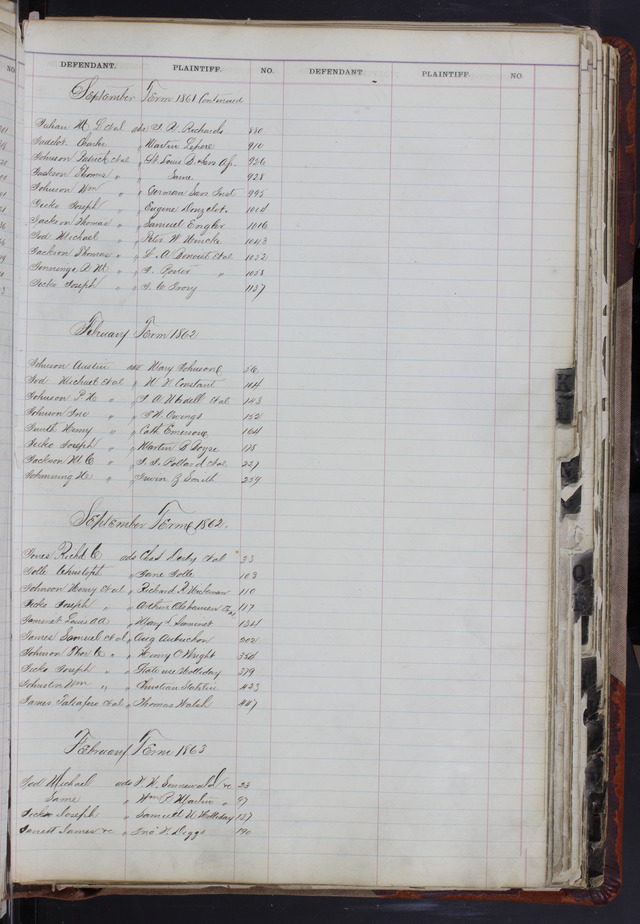 DEFENDANT. PLAINTIFF. NO. DEFENDANT PLAINTIFF. NO.
September Term 1861 Continued
Julian M etal ads J. R. Richards 880
Charles " Martin Lepere 910
Johnson Patrick etal " St Louis B. & Sav As. 926
Jackson Thomas " " Same 928
Johnson Wm " " German Sav Inst 995
Jecko Joseph " " Eugene Donzelot 1014
Jackson Thomas " " Samuel Engler 1016
Jod Michael " " Peter W Hencke 1043
Jackson Thomas " " L. A Benoist etal 1052
Jennings R M " " J. Porter " 1058
Jecko Joseph " " J. W Ivory 1137
February Term 1862
Johnson Austin ads Mary Johnson 56
Jod Michael etal " H. V Constant 104
Johnson P. H " " J. A Ubdell etal 143
Johnson Jno " " T. H. Owings 152
Henry " " Cath Emerson 164
Jecko Joseph " " Martin B Joyce 178
Jackson W. C " " J. J. Pollard etal 227
H " " Irwin Z Smith 259
September Term 1862.
Jones Richd C ads Chas Lucky etal 33
Jolle Christoph " Jane Jolle 103
Johnson Henry etal " Richard R 110
Jecko Joseph " " Arthur Olshausen etal 117
Jamenet Louis A A " Mary L Jamenet 134
James Samuel etal " Aug Aubuchon 202
Johnson Thos C " " Henry C Wright 354
Jecko Joseph " " Holliday 379
Johnston Wm " " Christian Stahlin 423
James Taliafero etal " Thomas Walsh 447
February Term 1863
Jod Michael ads F. H. Sennewald &c 23
Same " Wm P. Martin " 97
Jecko Joseph " Samuel N Holliday 137
Jarrett James &c " Jno T. Diggs 140